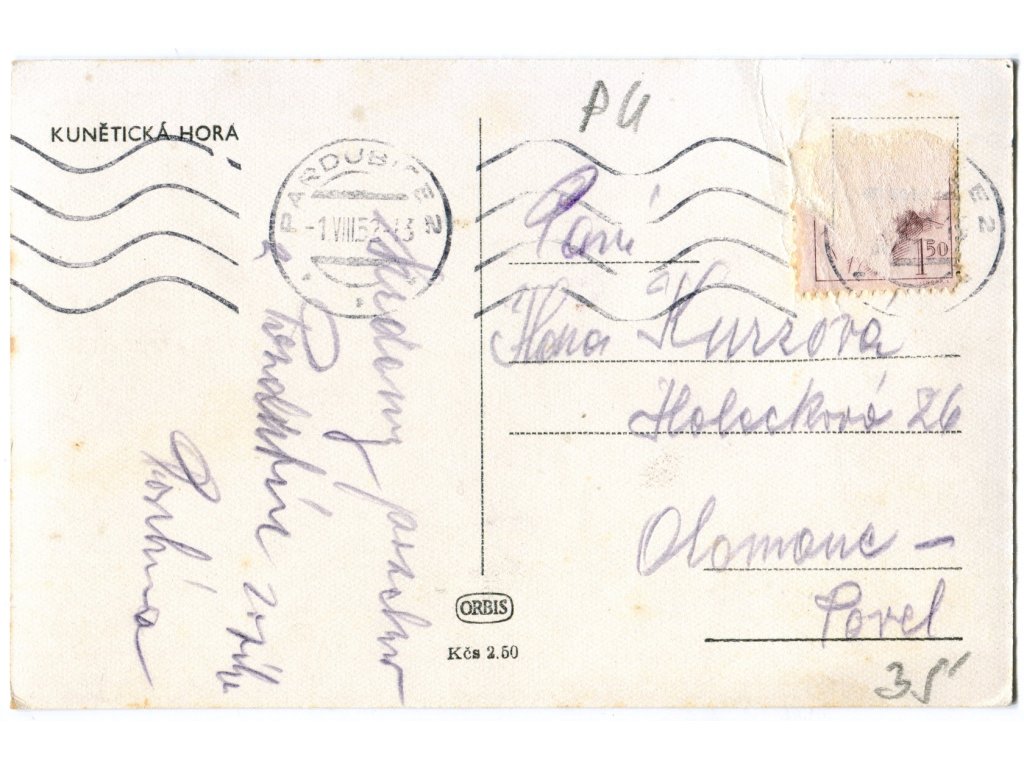 KUNĚTICKÁ HORA
PU
PARDUBICE 2
-1.VIII.52-13
E 2
1 50
Paní
Hana Kurzova
Holeckova 26
Olomouc -
Povel
Srdečný pozdrav
z Pardubic
ORBIS
Kčs 2.50
35